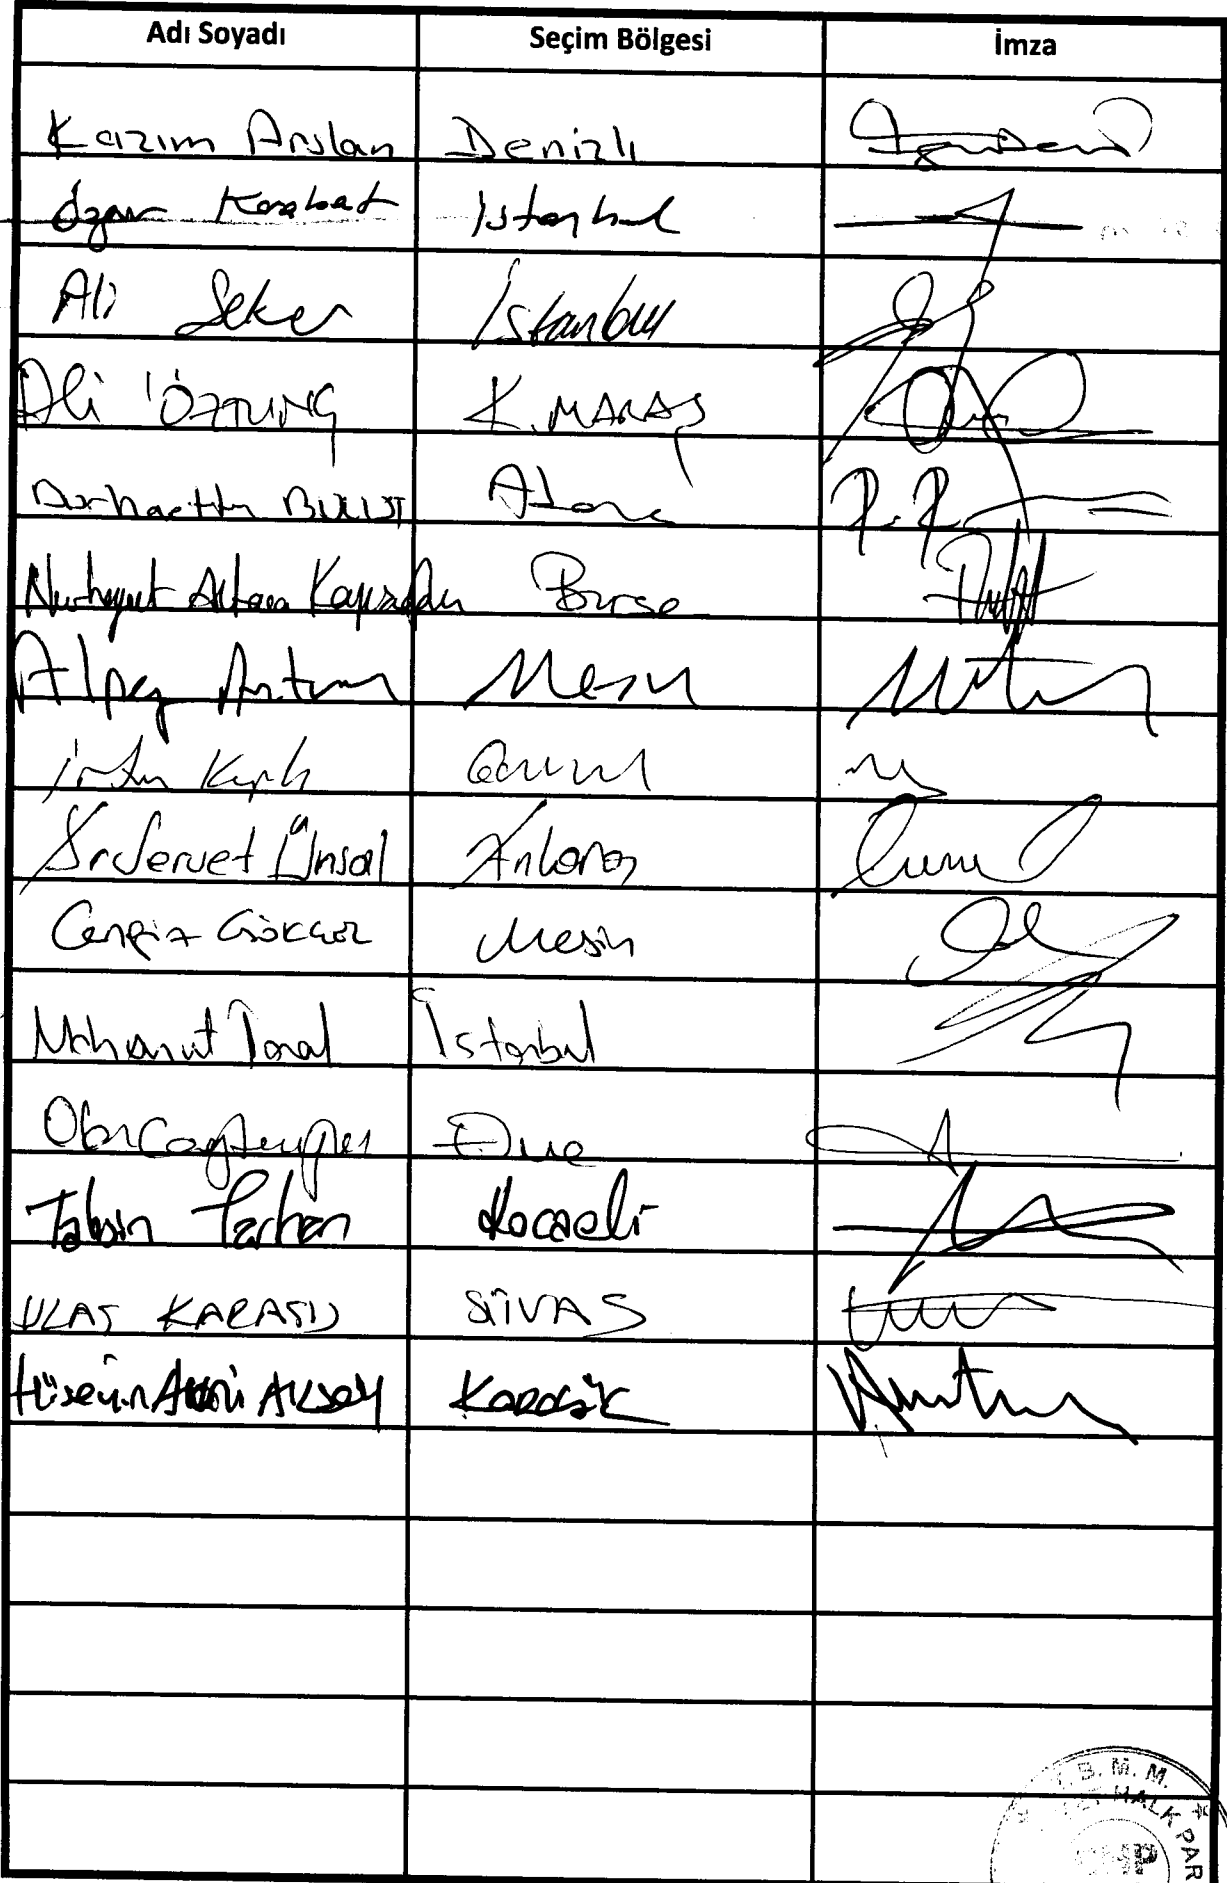 Adı Soyadı Seçim Bölgesi İmza
Kazım Arslan Denizli
Özgür Karabat İstanbul
Ali Şeker İstanbul
Ali ÖZTUNÇ K.MARAŞ
Burhanettin BULUT Adana
Nurhayat Altaca Kayışoğlu Bursa
Alpay Antmen Mersin
İrfan Kaplan
Servet Ünsal Ankara
Cengiz GÖKÇEL Mersin
Mahmut Tanal İstanbul
Tahsin Tarhan Kocaeli
ULAŞ KARASU SİVAS
Hüseyin Avni Aksoy Karabük
T.B.M.M.
HALK PAR
CHP